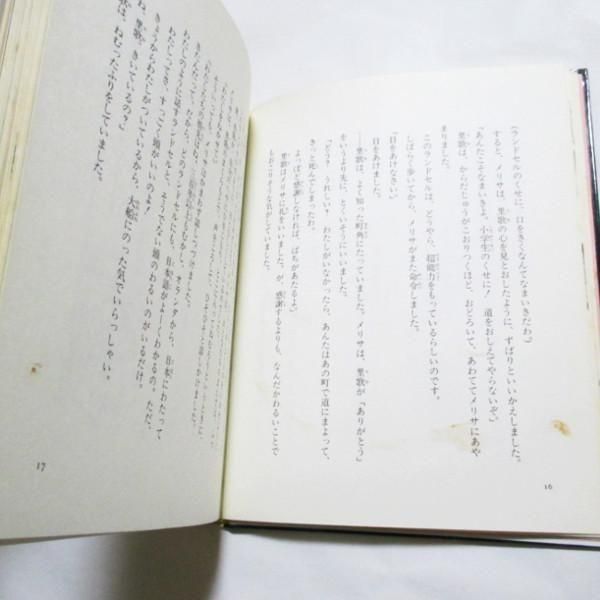 (ランドセルのくせに、口をきくなんてなまいきだわ)
すると、メリサは、里歌の心を見とおしたように、ずばりといいかえしました。
「あんたこそなまいきよ、小学生のくせに! 道をおしえてやらないぞ」
里歌は、からだじゅうがこおりつくほど、おどろいて、あわててメリサにあや
このランドセルは、どうやら、超能力をもっているらしいのです。
しばらく歩いてから、メリサがまた命令しました。
「目をあけなさい」
目をあけました。
——里歌は、よく知った町角にたっていました。メリサは、里歌が「ありがとう」
をいうより先に、とくいそうにいいました。
「どう? うれしい? わたしがいなかったら、あんたはあの町で道にまよって、
きっと死んでしまったわ。
よっぽど感謝しなければ、ばちがあたるよ」
里歌はメリサに礼をいいました。が、感謝するよりも、なんだかわるいことで
もおこりそうな気がしていました。
16
オランダから、日本にわたって
きたんだって。だから、ランドセルにも、日本語がよーくわかるの。ただ、
わたしのように話すランドセルと、そうでない頭のわるいのがいるだけ。
わたしってさ、すっごく頭がいいのよ!
きょうからわたしがついているから、大船にのった気でいらっしゃい。
ね、里歌、きいているの?」
歌は、ねむったふりをしていました。
17